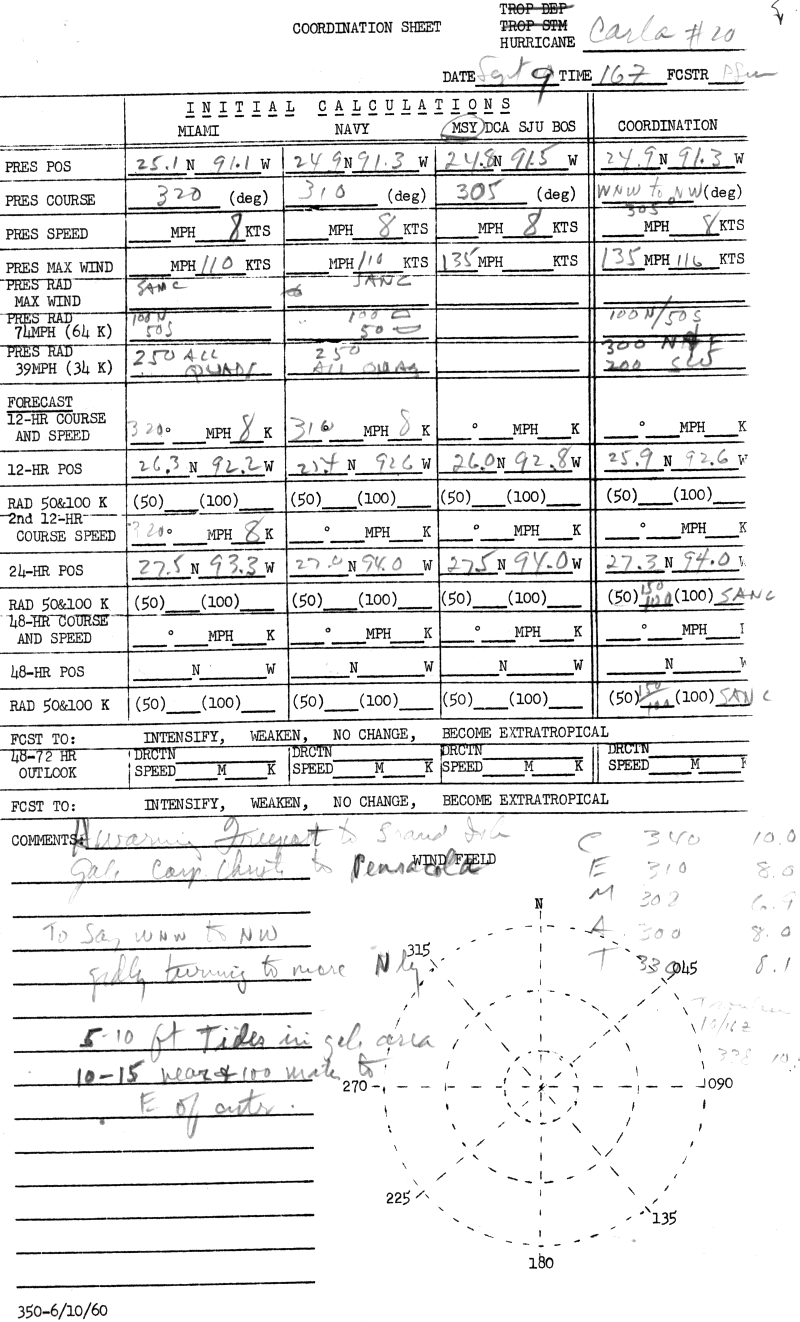 TROP DEP
COORDINATION SHEET TROP STM
HURRICANE Carla #20
DATE Sept 9 TIME 16Z FCSTR
INITIAL CALCULATIONS
MIAMI NAVY MSY DCA SJU BOS COORDINATION
PRES POS 25.1 N 91.1 W 24.9 N 91.3 W 24.8 N 91.5 W 24.9 N 91.3 W
PRES COURSE 320 (deg) 310 (deg) 305 (deg) WNW to NW (deg)
305
PRES SPEED MPH 8 KTS MPH 8 KTS MPH 8 KTS MPH 8 KTS
PRES MAX WIND MPH 110 KTS MPH 110 KTS 135 MPH KTS 135 MPH 116 KTS
PRES RAD SANC SANC
MAX WIND
PRES RAD 100N 100 100N/50S
74MPH (64 K) 50S 50
PRES RAD 250 ALL 250 300
39MPH (34 K) QUADS ALL QUAD 200 SW
FORECAST
12-HR COURSE
AND SPEED 320° MPH 8 K 310° MPH 8 K ° MPH K ° MPH K
12-HR POS 26.3 N 92.2 W N 92.6 W 26.0 N 92.8 W 25.9 N 92.6 W
RAD 50&100 K (50) (100) (50) (100) (50) (100) (50) (100)
2nd 12-HR
COURSE SPEED 320° MPH 8 K ° MPH K ° MPH K ° MPH K
24-HR POS 27.5 N 93.3 W 27.0 N 94.0 W 27.5 N 94.0 W 27.3 N 94.0 W
RAD 50&100 K (50) (100) (50) (100) (50) (100) (50) 150/100 (100) SANC
48-HR COURSE
AND SPEED ° MPH K ° MPH K ° MPH K ° MPH
48-HR POS N W N W N W N W
RAD 50&100 K (50) (100) (50) (100) (50) (100) (50) 150/100 (100) SANC
FCST TO: INTENSIFY, WEAKEN, NO CHANGE, BECOME EXTRATROPICAL
48-72 HR DRCTN DRCTN DRCTN DRCTN
OUTLOOK SPEED M K SPEED M K SPEED M K SPEED M K
FCST TO: INTENSIFY, WEAKEN, NO CHANGE, BECOME EXTRATROPICAL
COMMENTS: H warning Freeport to Grand Isle C 340 10.0
gale Corp Christi to Pensacola WIND FIELD E 310 8.0
N M 302 6.9
To Say WNW to NW A 300 8.0
gdly turning to more Nly 315 T 330 045 8.1
10/16Z
5-10 ft Tides in gale area 338
10-15 near & 100 miles to 270 090
E of center.
225 135
180
350-6/10/60